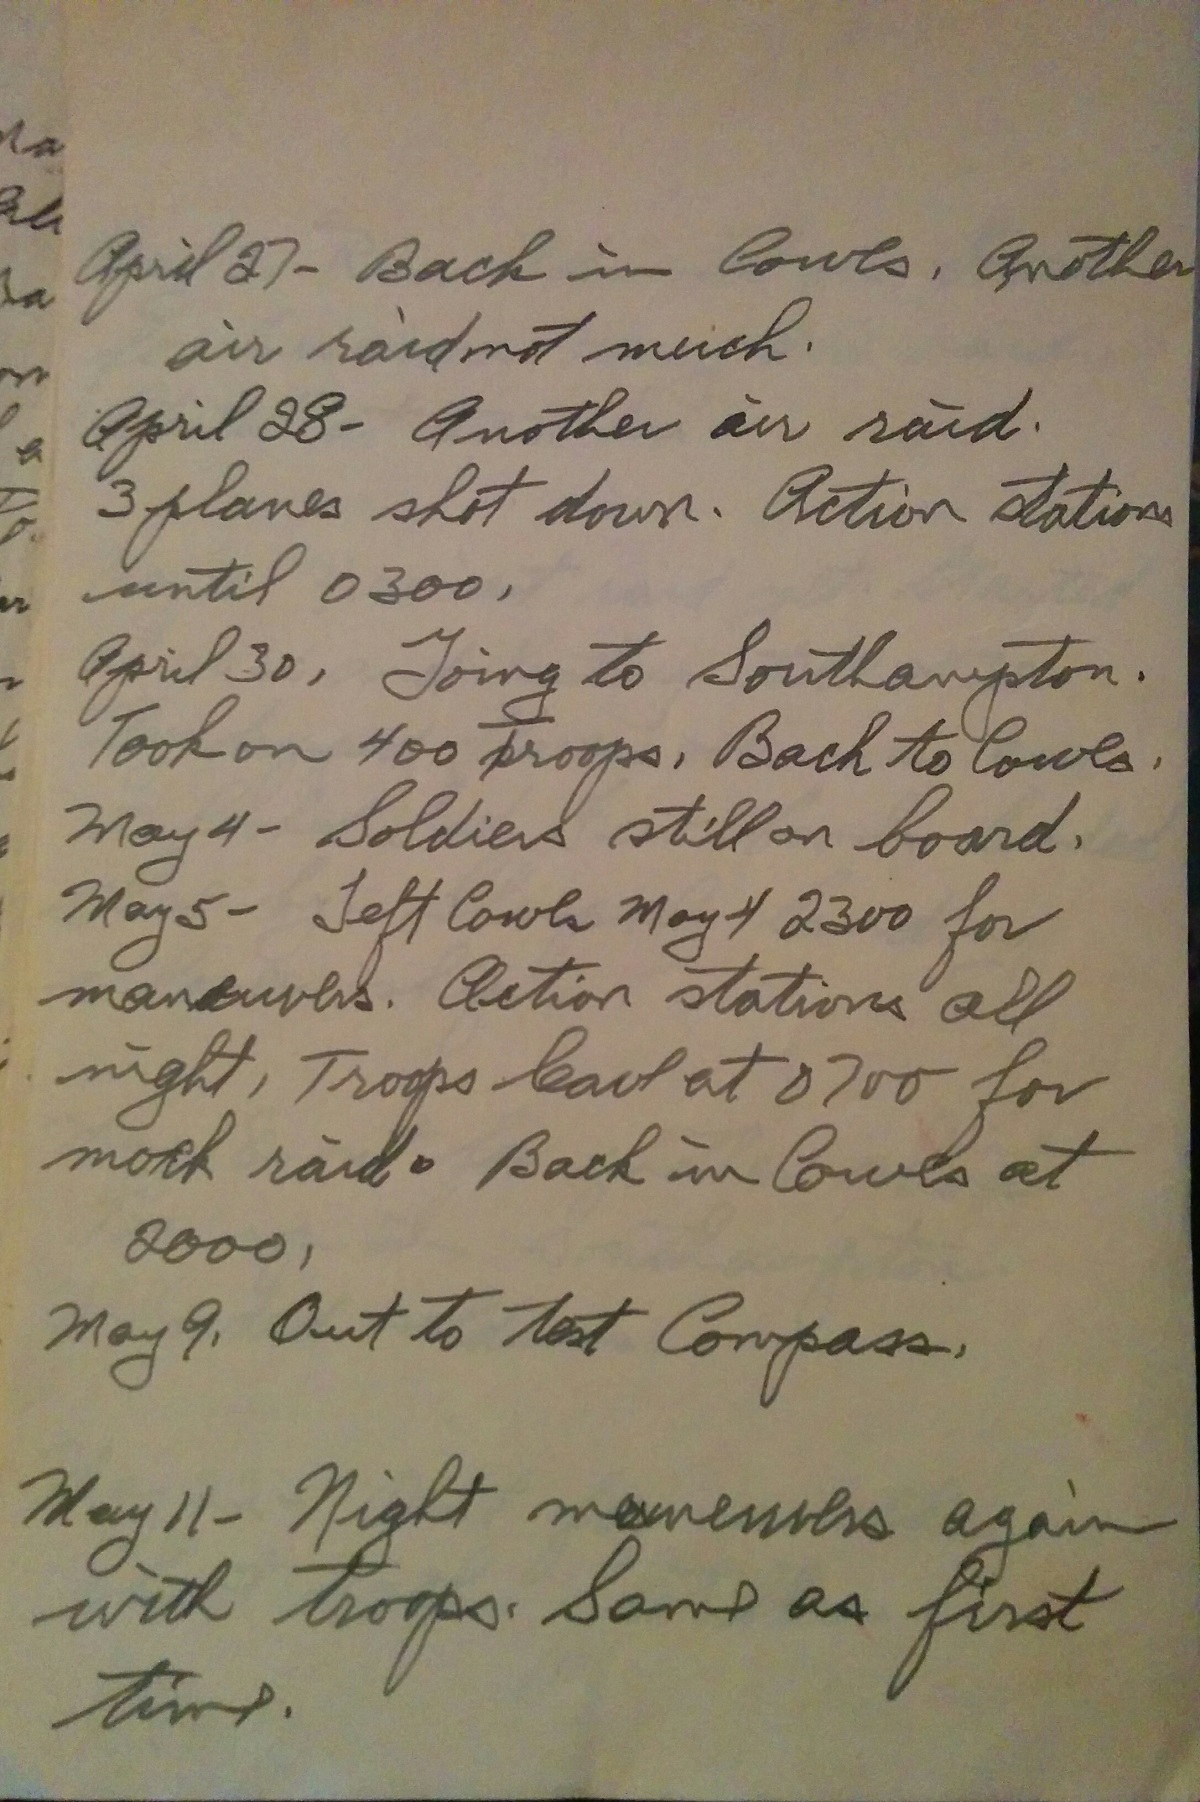 April 27- Back in Cowes. Another
air raid not much.
April 28- Another air raid.
3 planes shot down. Action stations
until 0300.
April 30, Going to Southampton.
Took on 400 Troops. Back to Cowes.
May 4- Soldiers still on board.
May 5- Left Cowes May 4 2300 for
maneuvers. Action stations all
night, Troops leave at 0700 for
mock raid. Back in Cowes at
2000,
May 9, Out to test Compass.
May 11- Night maneuvers again
with troops. Same as first
time.